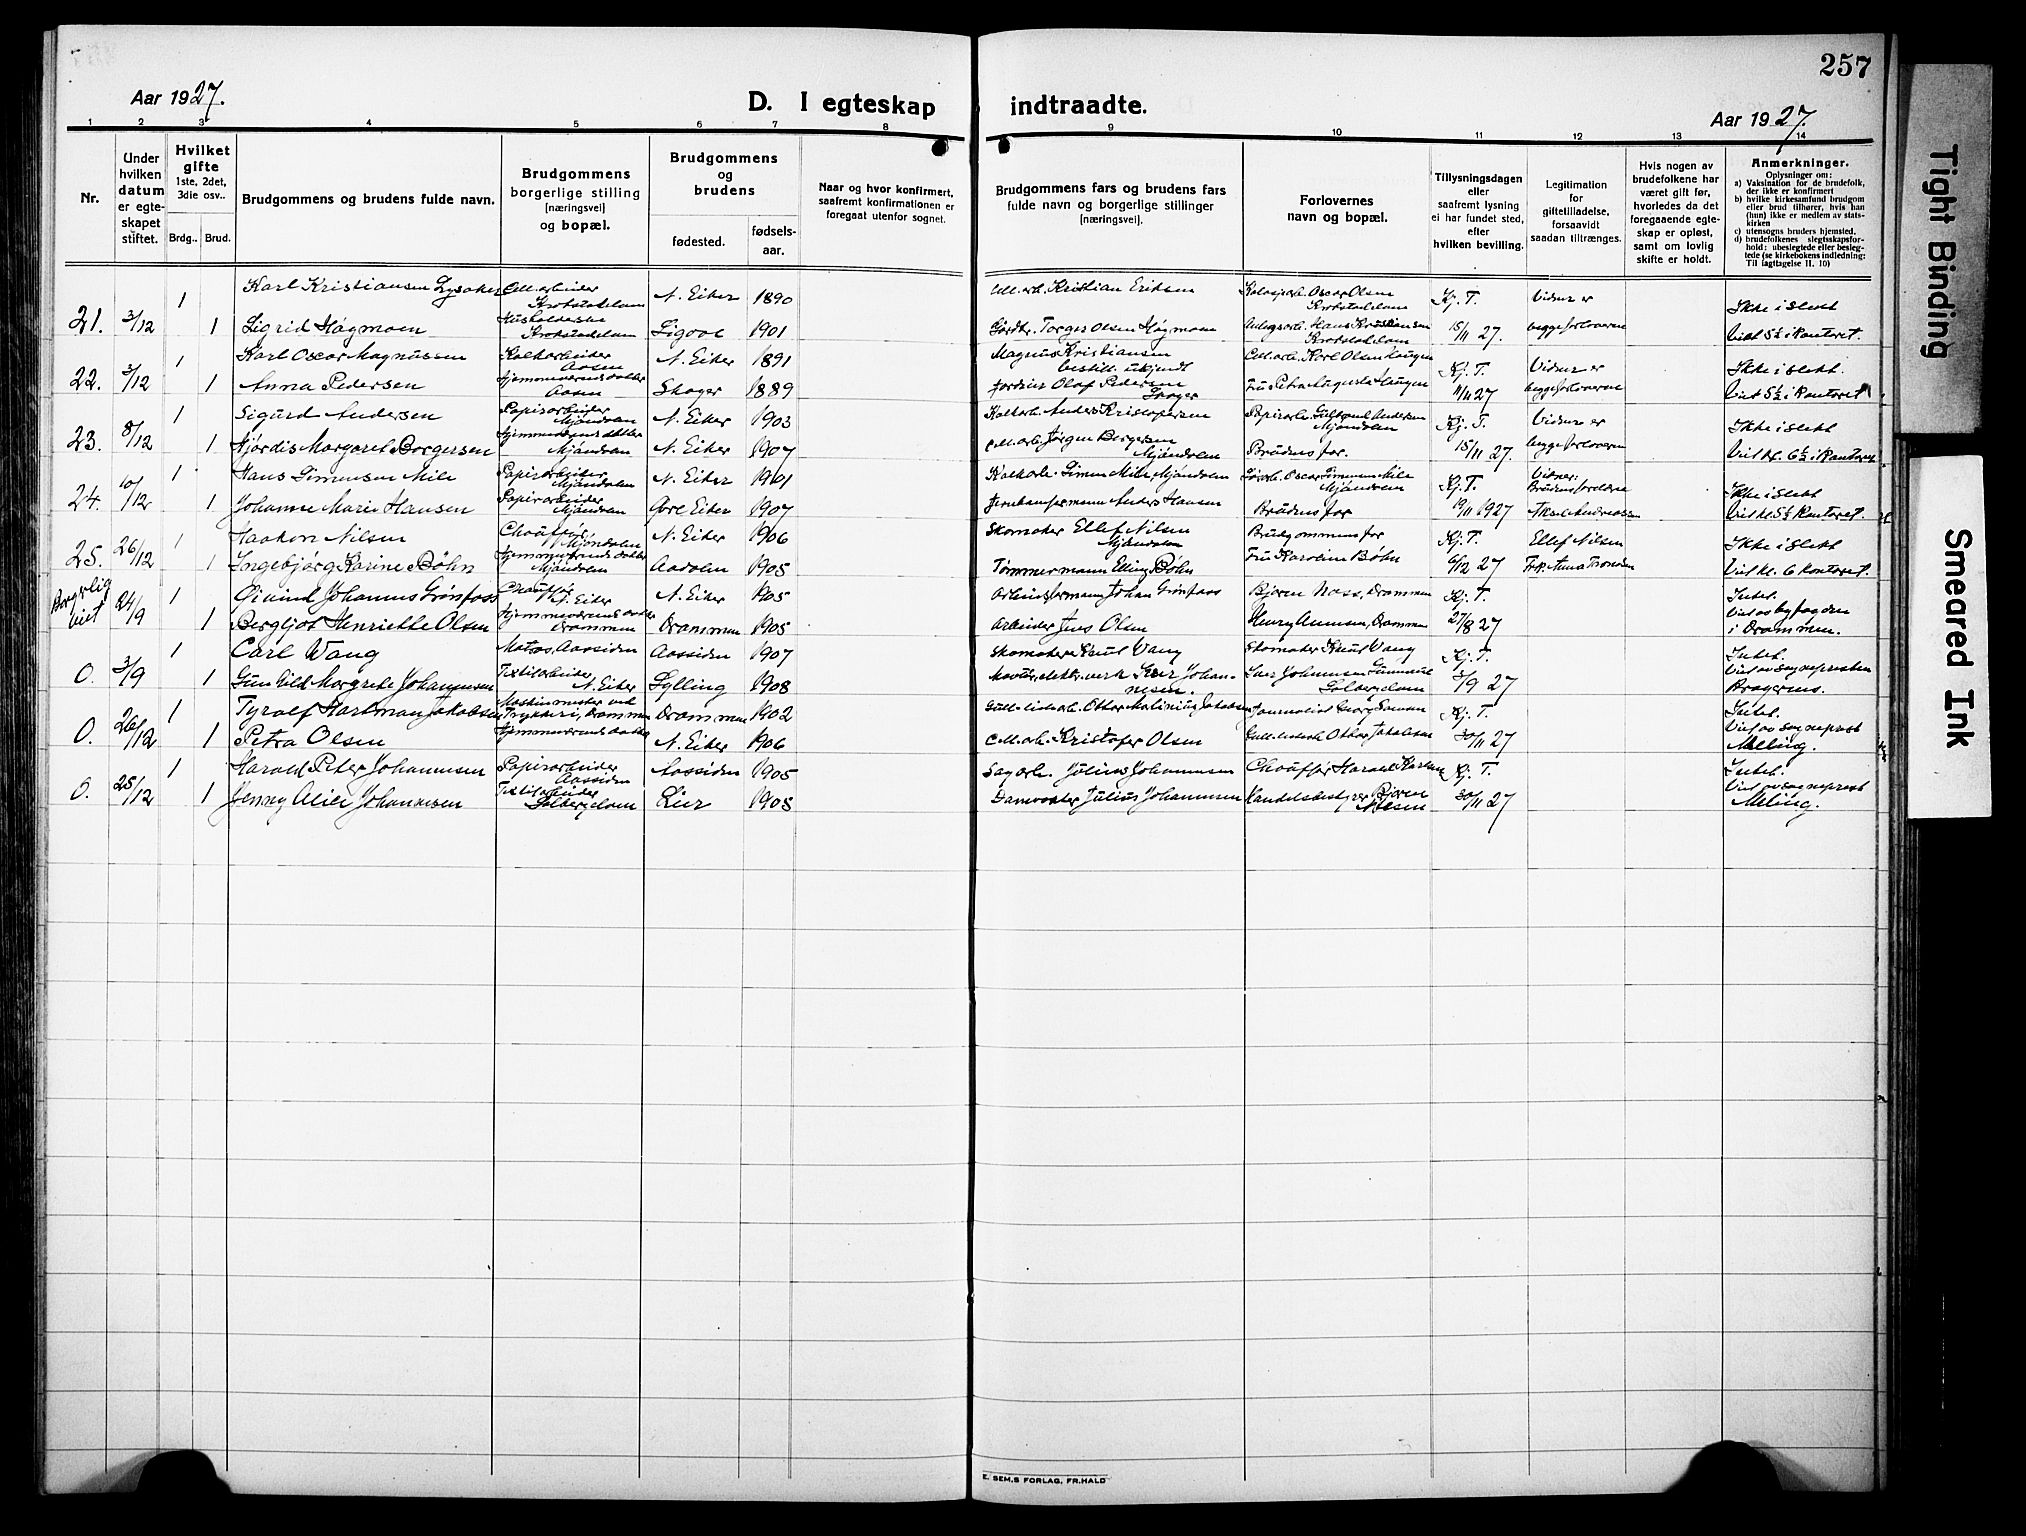 257
Aar 1927.
D. I egteskap indtraadte.
Aar 1927.
1 2 3 4 5 6 7 8 9 10 11 12 13 14
Nr.
Under hvilken datum er egteskapet stiftet.
Hvilket gifte 1ste, 2det, 3die osv..
Brdg.. Brud.
Brudgommens og brudens fulde navn.
Brudgommens borgerlige stilling (næringsvei) og bopæl.
Brudgommens og brudens
fødested.
fødselsaar.
Naar og hvor konfirmert, saafremt konfirmationen er foregaat utenfor sognet.
Brudgommens fars og brudens fars fulde navn og borgerlige stillinger (næringsvei).
Forlovernes navn og bopæl.
Tillysningsdagen eller saafremt lysning ei har fundet sted, efter hvilken bevilling.
Legitimation for giftetilladelse, forsaavidt saadan tiltrænges.
Hvis nogen av brudefolkene har været gift før, hvorledes da det foregaaende egteskap er opløst, samt om lovlig skifte er holdt.
Anmerkninger.
Oplysninger om:
a) Vaksination for de brudefolk, der ikke er konfirmert
b) hvilke kirkesamfund brudgom eller brud tilhører, hvis han (hun) ikke er medlem av statskirken
c) utensogns bruders hjemsted.
d) brudefolkenes slegtsskapsforhold: ubeslegtede eller beslegtede (se kirkebokens indledning: Til Iagttagelse II. 10)
1 Karl Kristiansen Lysaker Cell.arbeider Krokstadelven N. Eiker 1890 Cell.arb. Kristian Eriksen Oscar Olsen Krokstadelven Kj. T. Vidner er Ikke i slekt
21. 3/12 1 Sigrid Hagmoen Krokstadelven Sigdal 1901 Gårdbr. Torger Olsen Hagmoen Hans Kristiansen Krokstadelven 15/11 27. begge forloverne Viet 5½ i kontoret.
1 Karl Oscar Magnussen Kalkarbeider Aasen N. Eiker 1891 Magnus Kristiansen bestill. ukjendt Cell.arb. Karl Olsen Haugen Kj. T. Vidner er Ikke i slekt.
22. 3/12 1 Anna Pedersen Hjemmeværende datter Aasen Skoger 1889 Olaf Pedersen Skoger Fru Petra Augusta Haugen 11/11 27 begge forloverne Viet 5½ i kontoret
1 Sigurd Andersen Papirarbeider Mjøndalen N. Eiker 1903 Kalkarb. Anders Kristofersen Papirarb. Gulbrand Andersen Mjøndalen Kj. T. Vidner er Ikke i slekt
23. 8/12 1 Hjørdis Margaret Borgersen Hjemmeværende datter Mjøndalen N. Eiker 1907 Cell.arb. Jørgen Borgersen Mjøndalen Brudens far. 15/11 27. begge forloverne Viet kl. 6½ i kontoret
1 Hans Simensen Mile Papirarbeider Mjøndalen N. Eiker 1901 Kalkarb. Simen Mile, Mjøndalen Oscar Simensen Mile Mjøndalen Kj. T. Vidner: Brudens forældre Ikke i slekt
24. 10/12 1 Johanne Marie Hansen Papirarbeider Mjøndalen Øvre Eiker 1907 Jernbaneformann Anders Hansen Brudens far 19/11 1927 Viet kl. 5½ kontoret.
1 Haakon Nilsen Chauffør Mjøndalen N. Eiker 1906 Skomaker Ellef Nilsen Mjøndalen Brudgommens far Kj. T. Ellef Nilsen Ikke i slekt
25. 26/12 1 Ingebjørg Karine Bøhn Hjemmeværende datter Mjøndalen Aadalen 1905 Tømmermann Elling Bøhn Fru Karoline Bøhn 6/12 27 Frk. Anna Trondsen Viet kl. 6 kontoret.
Borgerlig viet 24/9 1 Øivind Johannes Grønfoss Chauffør N. Eiker N. Eiker 1905 Arbeidsformann Johan Grønfoss Bjarne Nass, Drammen Kj. T. Intet.
1 Bergljot Henriette Olsen Hjemmeværende datter Drammen Drammen 1905 Arbeider Jens Olsen Henry Amundsen, Drammen 27/8 27 Viet av byfogden i Drammen.
1 Carl Wang Matros, Aassiden Aassiden 1907 Skomaker Knut Wang Skomaker Knut Wang Kj. T. Intet.
0. 3/9 1 Gunhild Margrete Johannesen Textilarbeider N. Eiker Lylling 1908 Johannesen. Solbergelven 2/9 27 Viet av sogneprsten Bragernes.
1 Tyralf Hartman Jakobsen Maskinmester ved Trykkeri, Drammen Drammen 1902 Jakobsen Journalist Georg Kj. T. Intet.
0. 26/12 1 Petra Olsen Hjemmeværende datter N. Eiker 1906 Cell.arb. Kristofer Olsen Othar Jakobsen 30/11 27 Viet av sogneprest Meling.
1 Harald Peter Johannesen Papirarbeider Aassiden Aassiden 1905 Sagarb. Julius Johannesen Chauffør Harald Karlsen Kj. T. Intet.
0. 25/12 1 Jenny Alise Johannesen Textilarbeider Solbergelven Lier 1908 Julius Johannesen Handelsbestyrer Bjarne Nilsen 30/11 27 Viet av sogneprest Meling.
E. SEM,S FORLAG, FR.HALD
Tight Binding
Smeared Ink